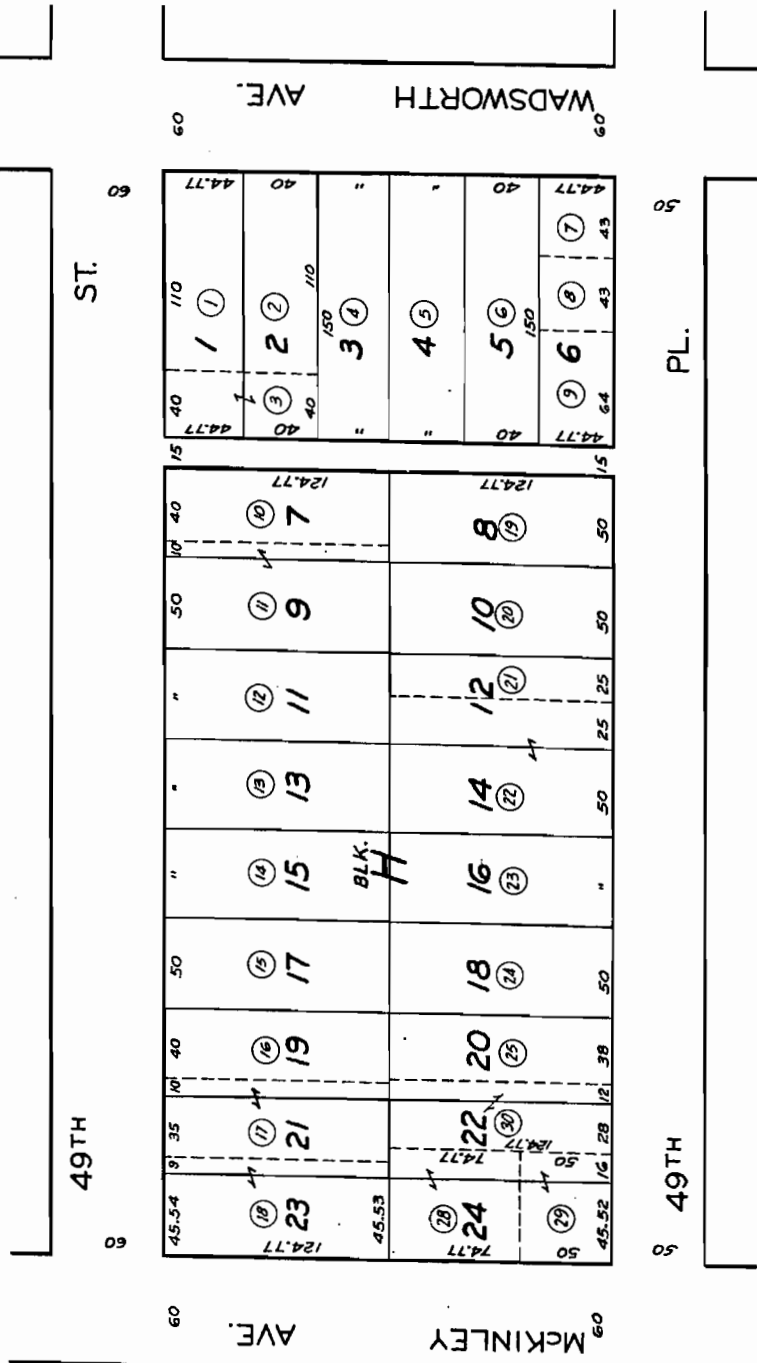 WADSWORTH AVE.
60 60
60 50
ST. PL.
44.77 40 " " 40 44.77
110 1 ① 2 ② 110 150 3 ④ 4 ⑤ 5 ⑥ 150 ⑦ 43
⑧ 43
6
40 ③ 40 ⑨ 64
44.77 40 " " 40 44.77
15 15
124.77 124.77
40 ⑩ 7 8 ⑲ 50
10
50 ⑪ 9 10 ⑳ 50
" ⑫ 11 12 ㉑ 25
25
" ⑬ 13 14 ㉒ 50
" ⑭ 15 BLK. H 16 ㉓ "
50 ⑮ 17 18 ㉔ 50
40 ⑯ 19 20 ㉕ 38
10 12
35 ⑰ 21 22 ㉚ 124.77 28
9 74.77 50 16
45.54 ⑱ 23 45.53 ㉘ 24 ㉙ 45.52
124.77 74.77 50
49TH 49TH
60 50
60 60
McKINLEY AVE.